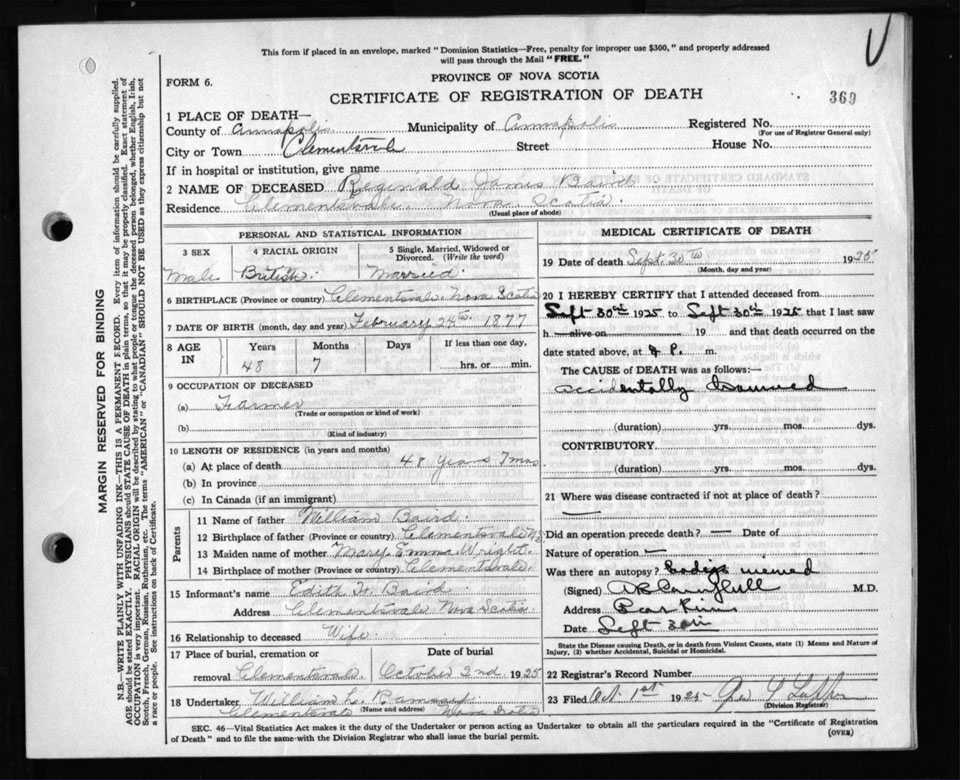 This form if placed in an envelope, marked "Dominion Statistics—Free, penalty for improper use $300," and properly addressed
will pass through the Mail "FREE."
FORM 6.
PROVINCE OF NOVA SCOTIA
CERTIFICATE OF REGISTRATION OF DEATH
369
1 PLACE OF DEATH—
County of Annapolis Municipality of Annapolis Registered No.
(For use of Registrar General only)
City or Town Clementsvale Street House No.
If in hospital or institution, give name
2 NAME OF DECEASED Reginald James Baird
Residence Clementsvale. Nova Scotia.
(Usual place of abode)
PERSONAL AND STATISTICAL INFORMATION
3 SEX 4 RACIAL ORIGIN 5 Single, Married, Widowed or
Divorced. (Write the word)
Male British. Married
6 BIRTHPLACE (Province or country) Clementsvale. Nova Scotia
7 DATE OF BIRTH (month, day and year) February 24th. 1877
8 AGE IN Years Months Days If less than one day,
48 7 hrs. or min.
9 OCCUPATION OF DECEASED
(a) Farmer
(Trade or occupation or kind of work)
(b)
(Kind of industry)
10 LENGTH OF RESIDENCE (in years and months)
(a) At place of death 48 years 7 mos
(b) In province
(c) In Canada (if an immigrant)
Parents
11 Name of father William Baird.
12 Birthplace of father (Province or country) Clementsvale N.S.
13 Maiden name of mother Mary Emma Wright.
14 Birthplace of mother (Province or country) Clementsvale.
15 Informant's name Edith H. Baird
Address Clementsvale Nova Scotia.
16 Relationship to deceased Wife
17 Place of burial, cremation or Date of burial
removal Clementsvale October 2nd 1925
18 Undertaker William L. Ramsay
(Name and address)
Clementsvale Nova Scotia
MEDICAL CERTIFICATE OF DEATH
19 Date of death Sept. 30th 1925
(Month, day and year)
20 I HEREBY CERTIFY that I attended deceased from
Sept 30th 1925 to Sept 30th 1925 that I last saw
h — alive on 19 and that death occurred on the
date stated above, at P. m.
The CAUSE of DEATH was as follows:—
accidentally drowned
(duration) yrs. mos. dys.
CONTRIBUTORY.
(duration) yrs. mos. dys.
21 Where was disease contracted if not at place of death?
Did an operation precede death? — Date of
Nature of operation —
Was there an autopsy? Body viewed
(Signed) M.D.
Address Bear River
Date Sept 30th
State the Disease causing Death, or in death from Violent Causes, state (1) Means and Nature of
Injury, (2) whether Accidental, Suicidal or Homicidal.
22 Registrar's Record Number
23 Filed Oct 1st 1925 Geo
(Division Registrar)
SEC. 46—Vital Statistics Act makes it the duty of the Undertaker or person acting as Undertaker to obtain all the particulars required in the "Certificate of Registration
of Death" and to file the same with the Division Registrar who shall issue the burial permit.
(OVER)
MARGIN RESERVED FOR BINDING
N.B.—WRITE PLAINLY WITH UNFADING INK—THIS IS A PERMANENT RECORD. Every item of information should be carefully supplied.
AGE should be stated EXACTLY. PHYSICIANS should STATE CAUSE OF DEATH in plain terms, so that it may be properly classified. Exact statement of
OCCUPATION is very important. RACIAL ORIGIN will be described by stating to what people or tongue the deceased person belonged, whether English, Irish,
Scotch, French, German, Russian, Ruthenian, etc. The terms "AMERICAN" or "CANADIAN" SHOULD NOT BE USED as they express citizenship but not
a race or people. See instructions on back of Certificate.